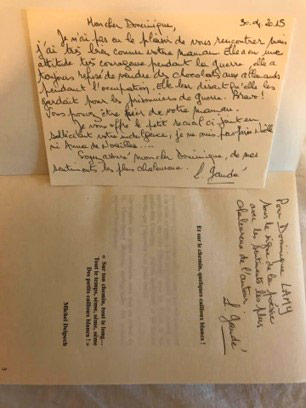 Mon cher Dominique, 30.04.2015
Je n'ai pas eu le plaisir de vous rencontrer mais
j'ai très bien connu votre maman. Elle a eu une
attitude très courageuse pendant la guerre, elle a
toujours refusé de vendre des chocolats aux allemands
pendant l'occupation. Elle leur disait qu'elle les
gardait pour les prisonniers de guerre. Bravo!
Vous pouvez être fier de votre maman.
Je vous offre le petit recueil ci joint en
sollicitant votre indulgence, je ne suis pas
ni Anne de Noailles....
Soyez assuré mon cher Dominique, de mes
sentiments les plus chaleureux.
Pour Dominique LAMY
sous le signe de la poésie
avec les sentiments les plus
chaleureux de l'auteur.
Et sur le chemin, quelques cailloux blancs !
« Sur ton chemin, tout le long...
Tout le temps, sème, sème, sème
Des petits cailloux blancs ! »
Michel Delpech